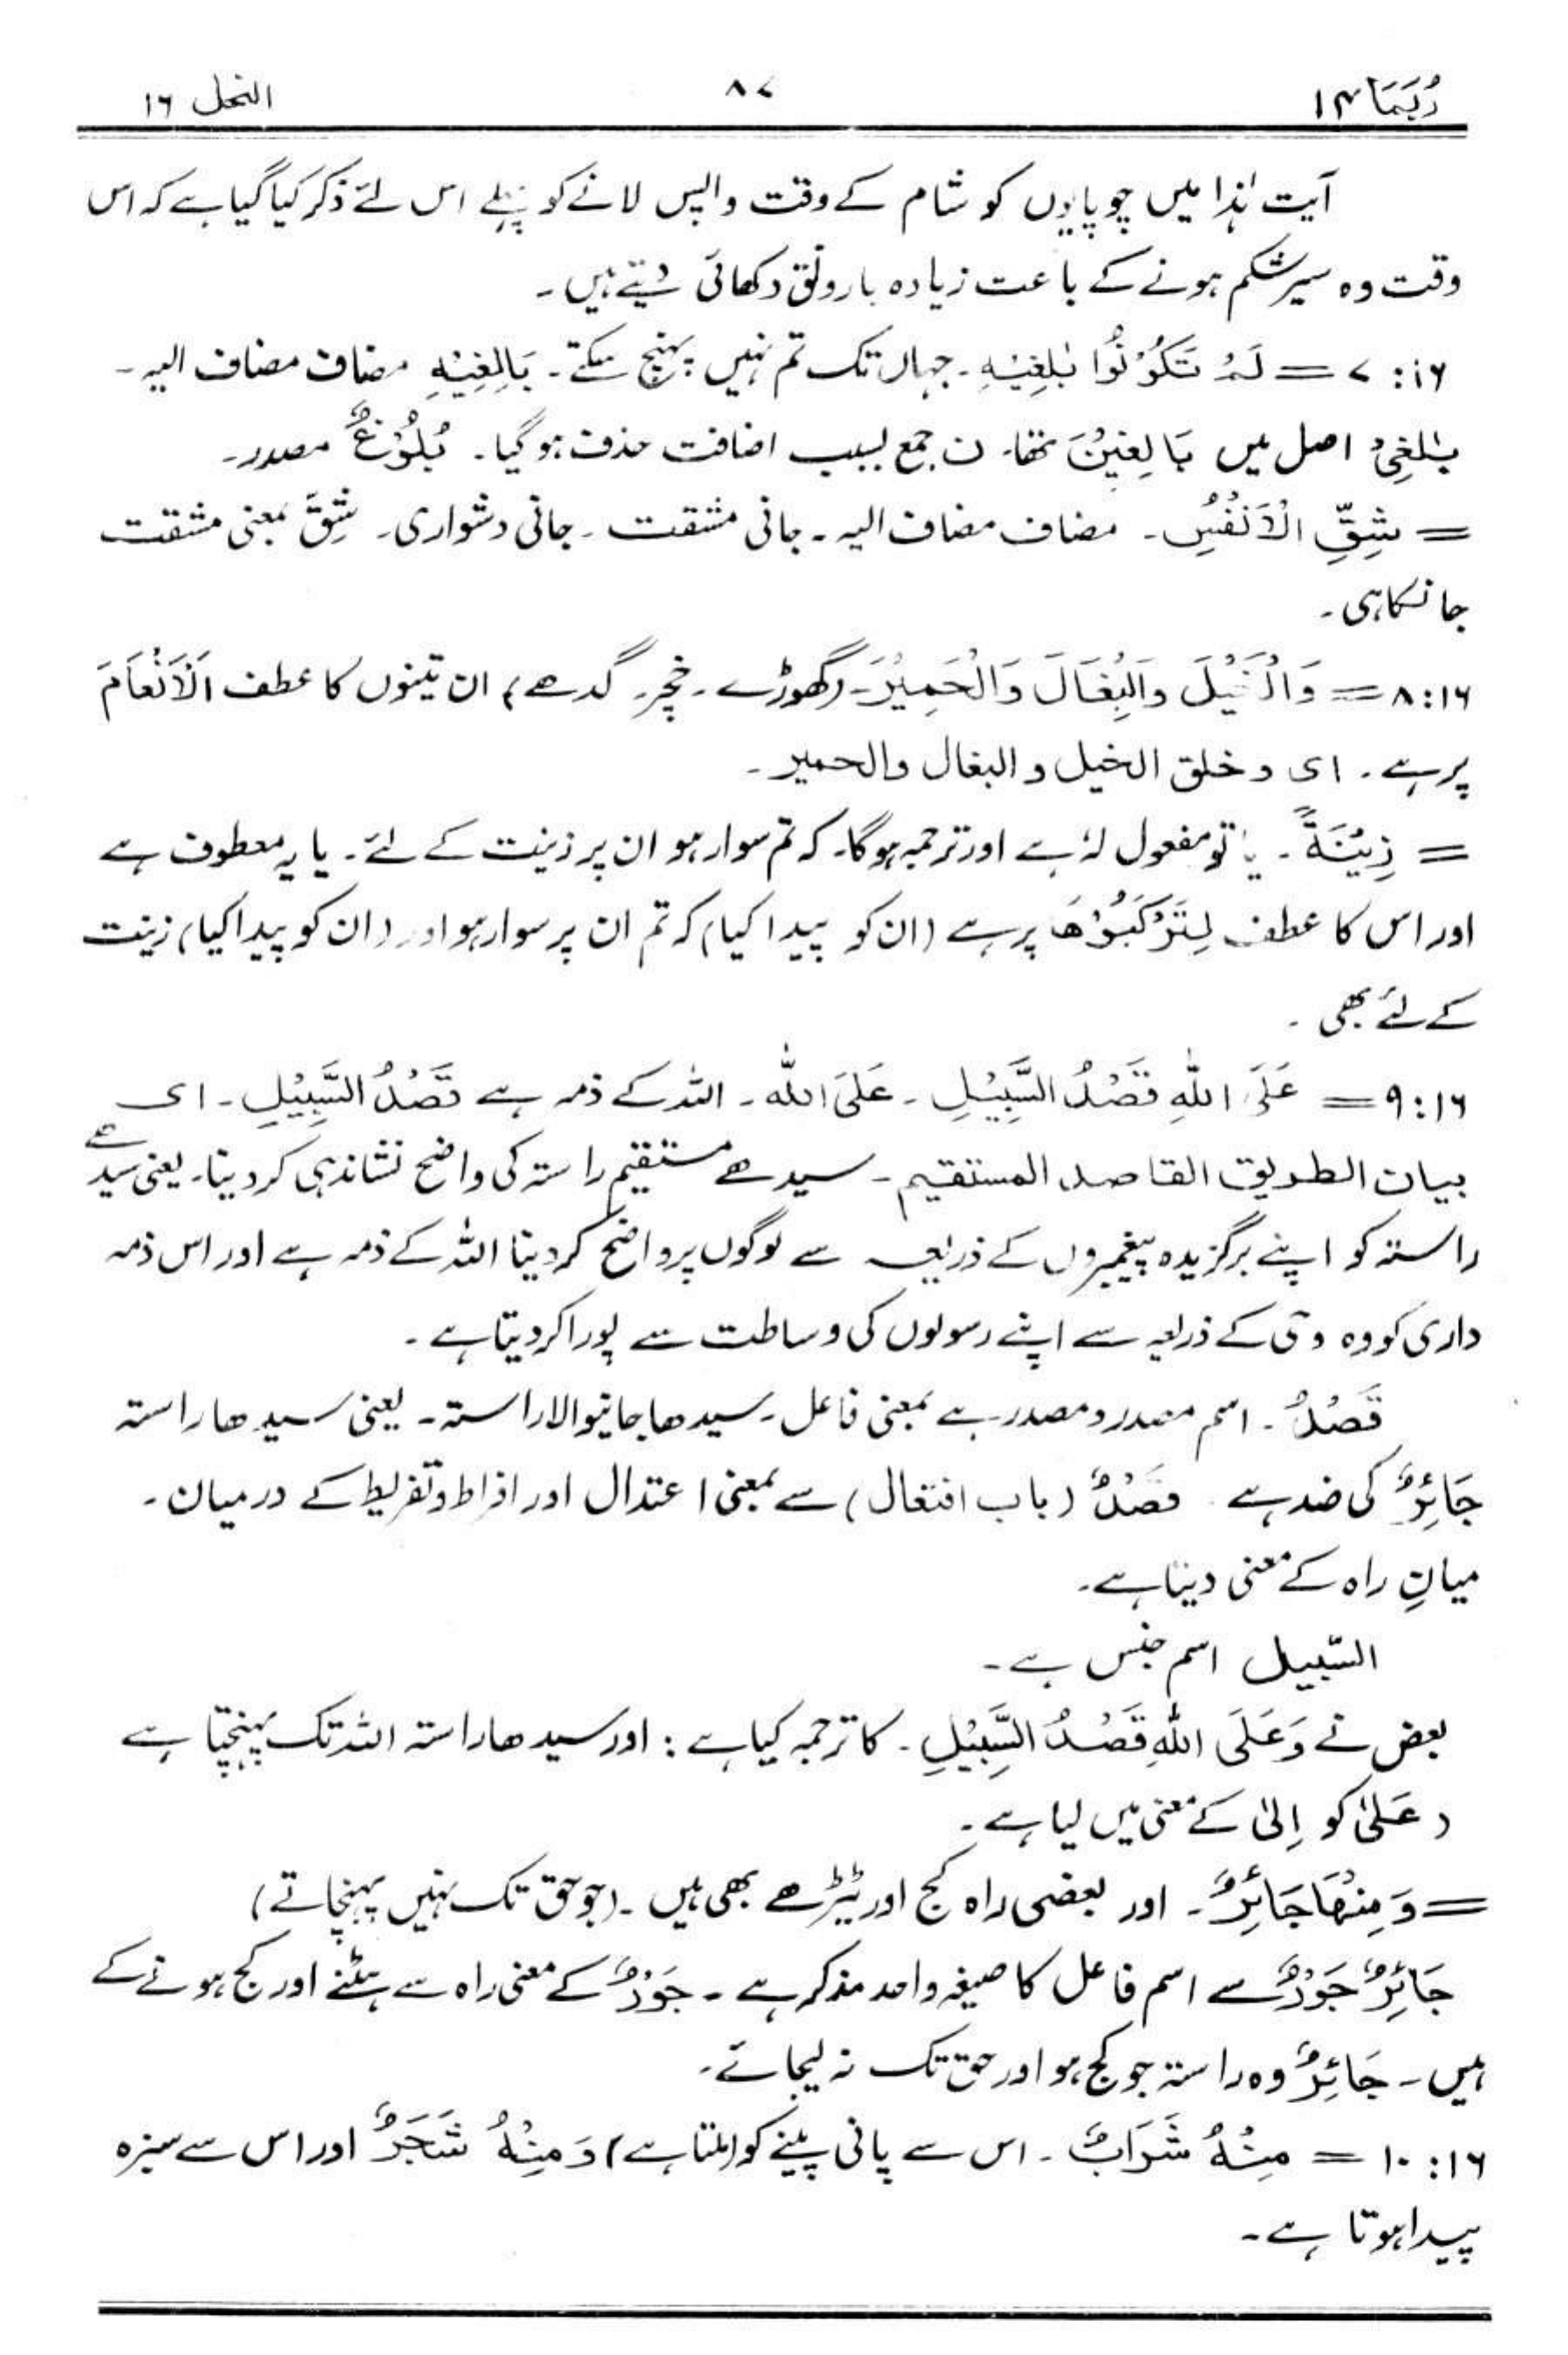 رُبَمَا ۱۴ ۸۷ النحل ۱۶
آیت ہٰذا میں چوپایوں کو شام کے وقت واپس لانے کو پہلے اس لئے ذکر کیا گیا ہے کہ اس
وقت وہ سیر شکم ہونے کے باعث زیادہ بارونق دکھائی دیتے ہیں۔
۱۶: ۷ = لَمْ تَكُوْنُوْا بٰلِغِيْهِ۔ جہاں تک تم نہیں پہنچ سکتے۔ بَالِغِيْهِ مضاف مضاف الیہ۔
بٰلِغِیْ اصل میں بَالِغِيْنَ تھا۔ ن جمع بسبب اضافت حذف ہو گیا۔ بُلُوْغٌ مصدر۔
= شِقِّ الْاَنْفُسِ۔ مضاف مضاف الیہ۔ جانی مشقت۔ جانی دشواری۔ شِقَّ بمعنی مشقت
جانکاہی۔
۱۶: ۸ = وَالْخَيْلَ وَالْبِغَالَ وَالْحَمِيْرَ۔ (گھوڑے۔ خچر۔ گدھے) ان تینوں کا عطف اَلْاَنْعَامَ
پر ہے۔ ای و خلق الخیل و البغال والحمیر۔
= زِيْنَةً۔ یا تو مفعول لہٗ ہے اور ترجمہ ہوگا۔ کہ تم سوار ہو ان پر زینت کے لئے۔ یا یہ معطوف ہے
اور اس کا عطف لِتَرْكَبُوْهَا پر ہے (ان کو پیدا کیا) کہ تم ان پر سوار ہو اور (ان کو پیدا کیا) زینت
کے لئے بھی۔
۱۶: ۹ = عَلَى اللّٰهِ قَصْدُ السَّبِيْلِ۔ عَلَى اللّٰه۔ اللہ کے ذمہ ہے قَصْدُ السَّبِيْلِ۔ ای
بیان الطریق القاصد المستقیم۔ سیدھے مستقیم راستہ کی واضح نشاندہی کر دینا۔ یعنی سیدھے
راستہ کو اپنے برگزیدہ پیغمبروں کے ذریعہ سے لوگوں پر واضح کر دینا اللہ کے ذمہ ہے اور اس ذمہ
داری کو وہ وحی کے ذریعہ سے اپنے رسولوں کی وساطت سے پورا کر دیتا ہے۔
قَصْدٌ۔ اسم مصدر و مصدر ہے بمعنی فاعل۔ سیدھا جانیوالا راستہ۔ یعنی سیدھا راستہ
جَائِرٌ کی ضد ہے۔ قَصْدٌ (باب افتعال) سے بمعنی اعتدال اور افراط و تفریط کے درمیان۔
میانِ راہ کے معنی دیتا ہے۔
السّبیل اسم جنس ہے۔
بعض نے وَعَلَى اللّٰهِ قَصْدُ السَّبِيْلِ۔ کا ترجمہ کیا ہے: اور سیدھا راستہ اللہ تک پہنچتا ہے
(عَلٰی کو اِلٰی کے معنی میں لیا ہے۔
= وَمِنْهَا جَائِرٌ۔ اور بعضی راہ کج اور ٹیڑھے بھی ہیں۔ (جو حق تک نہیں پہنچاتے)
جَائِرٌ جَوْرٌ سے اسم فاعل کا صیغہ واحد مذکر ہے۔ جَوْرٌ کے معنی راہ سے ہٹنے اور کج ہونے کے
ہیں۔ جَائِرٌ وہ راستہ جو کج ہو اور حق تک نہ لیجائے۔
۱۶: ۱۰ = مِنْهُ شَرَابٌ۔ اس سے پانی پینے کو (ملتا ہے) وَمِنْهُ شَجَرٌ اور اس سے سبزہ
پیدا ہوتا ہے۔